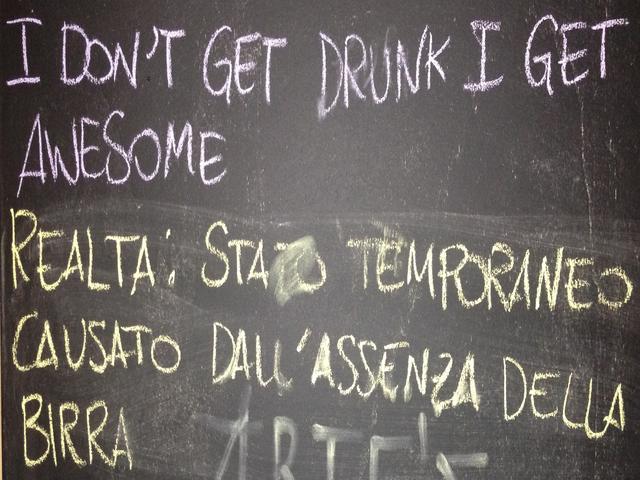 I DON'T GET DRUNK I GET
AWESOME
REALTA: STATO TEMPORANEO
CAUSATO DALL'ASSENZA DELLA
BIRRA